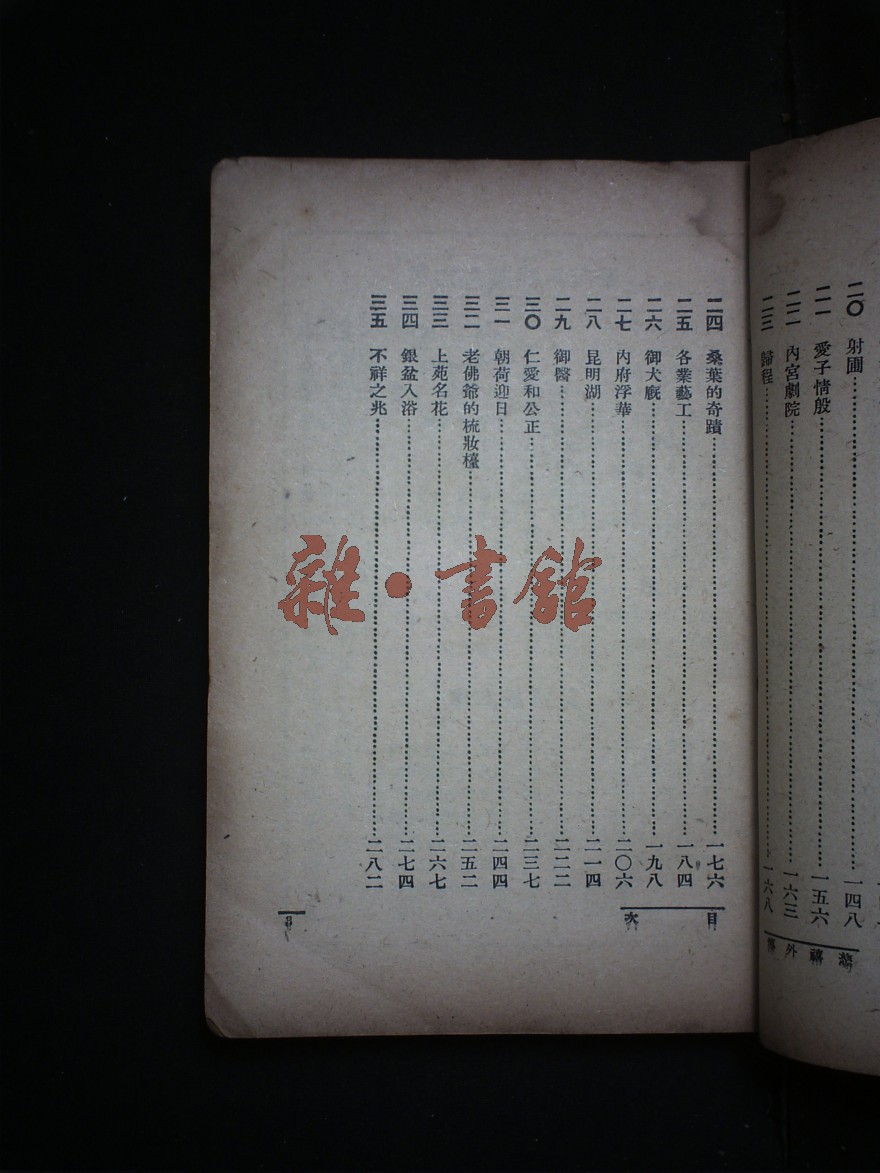 二〇 射圃……一四八
二一 愛子情殷……一五六
二二 內宮劇院……一六三
二三 歸程……一六八
慈禧外傳
二四 桑葉的奇蹟……一七六
二五 各業藝工……一八四
二六 御犬廐……一九八
二七 內府浮華……二〇六
二八 昆明湖……二一四
二九 御醫……二二二
三〇 仁愛和公正……二三七
三一 朝荷迎日……二四四
三二 老佛爺的梳妝檯……二五二
三三 上苑名花……二六七
三四 銀盆入浴……二七四
三五 不祥之兆……二八二
目次
3
雜·書館